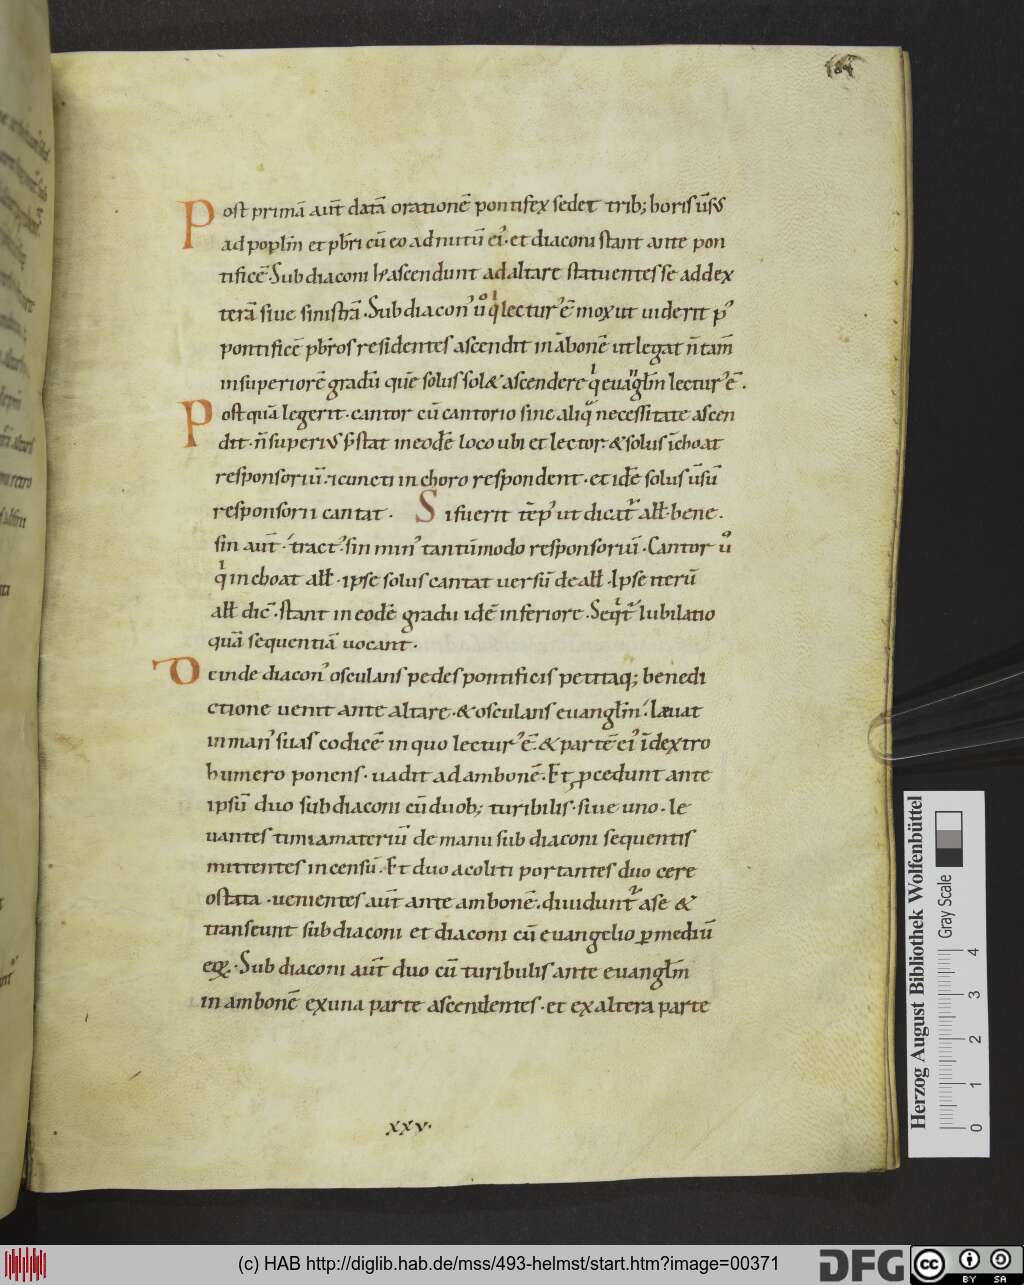 184
Post primā aut̄ datā orationē pontifex sedet trib; horis ūsus
ad popl̄m et pb̄ri cū eo ad nutū ei᾽· et diaconi stant ante pon
tificē· Subdiaconi ħ ascendunt ad altare statuentes se ad dex
terā siue sinistrā · Subdiacon᾽ ů qͥ lectur᾽ ē mox ut uiderit p᾽
pontificē pb̄ros residentes ascendit in ābonē ut legat n̄ tam̄
in superiorē gradū quē solus sol& ascendere qͥ euangl̄m lectur᾽ ē .
Postquā legerit · cantor cū cantorio sine aliqͣ necessitate ascen
dit · n̄ superius s; stat in eodē loco ubi et lector · & solus īchoat
responsoriū · & cuncti in choro respondent · et idē solus ūsū
responsorii cantat · Si fuerit tēp᾽ ut dicat᷑ alł · bene .
sin aut̄ · tract᾽ · sin min᾽ tantūmodo responsoriū · Cantor ů
qͥ inchoat alł · ipse solus cantat uersū de alł · Ipse iterū
alł dic̄ · stant in eodē gradu idē inferiore · Seqͥt᷑ iubilatio
quā sequentiā uocant ·
Deinde diacon᾽ osculans pedes pontificis petitaq; benedi
ctione uenit ante altare · & osculans euangl̄m · Leuat
in man᾽ suas codicē in quo lectur᾽ ē · & partē ei᾽ ī dextro
humero ponens · uadit ad ambonē · Et ꝓcedunt ante
ipsū duo subdiaconi cū duob; turibilis · siue uno · le
uantes timiamateriū de manu subdiaconi sequentis
mittentes incensū · Et duo acoliti portantes duo cere
ostata · uenientes aut̄ ante ambonē · diuidunt᷑ a se &
transeunt subdiaconi et diaconi cū euangelio ꝑ mediū
eoꝝ · Subdiaconi aut̄ duo cū turibulis ante euangl̄m
in ambonē ex una parte ascendentes · et ex altera parte
xxv·
Herzog August Bibliothek Wolfenbüttel
Gray Scale
0 1 2 3 4
(c) HAB http://diglib.hab.de/mss/493-helmst/start.htm?image=00371
DFG
cc
BY SA